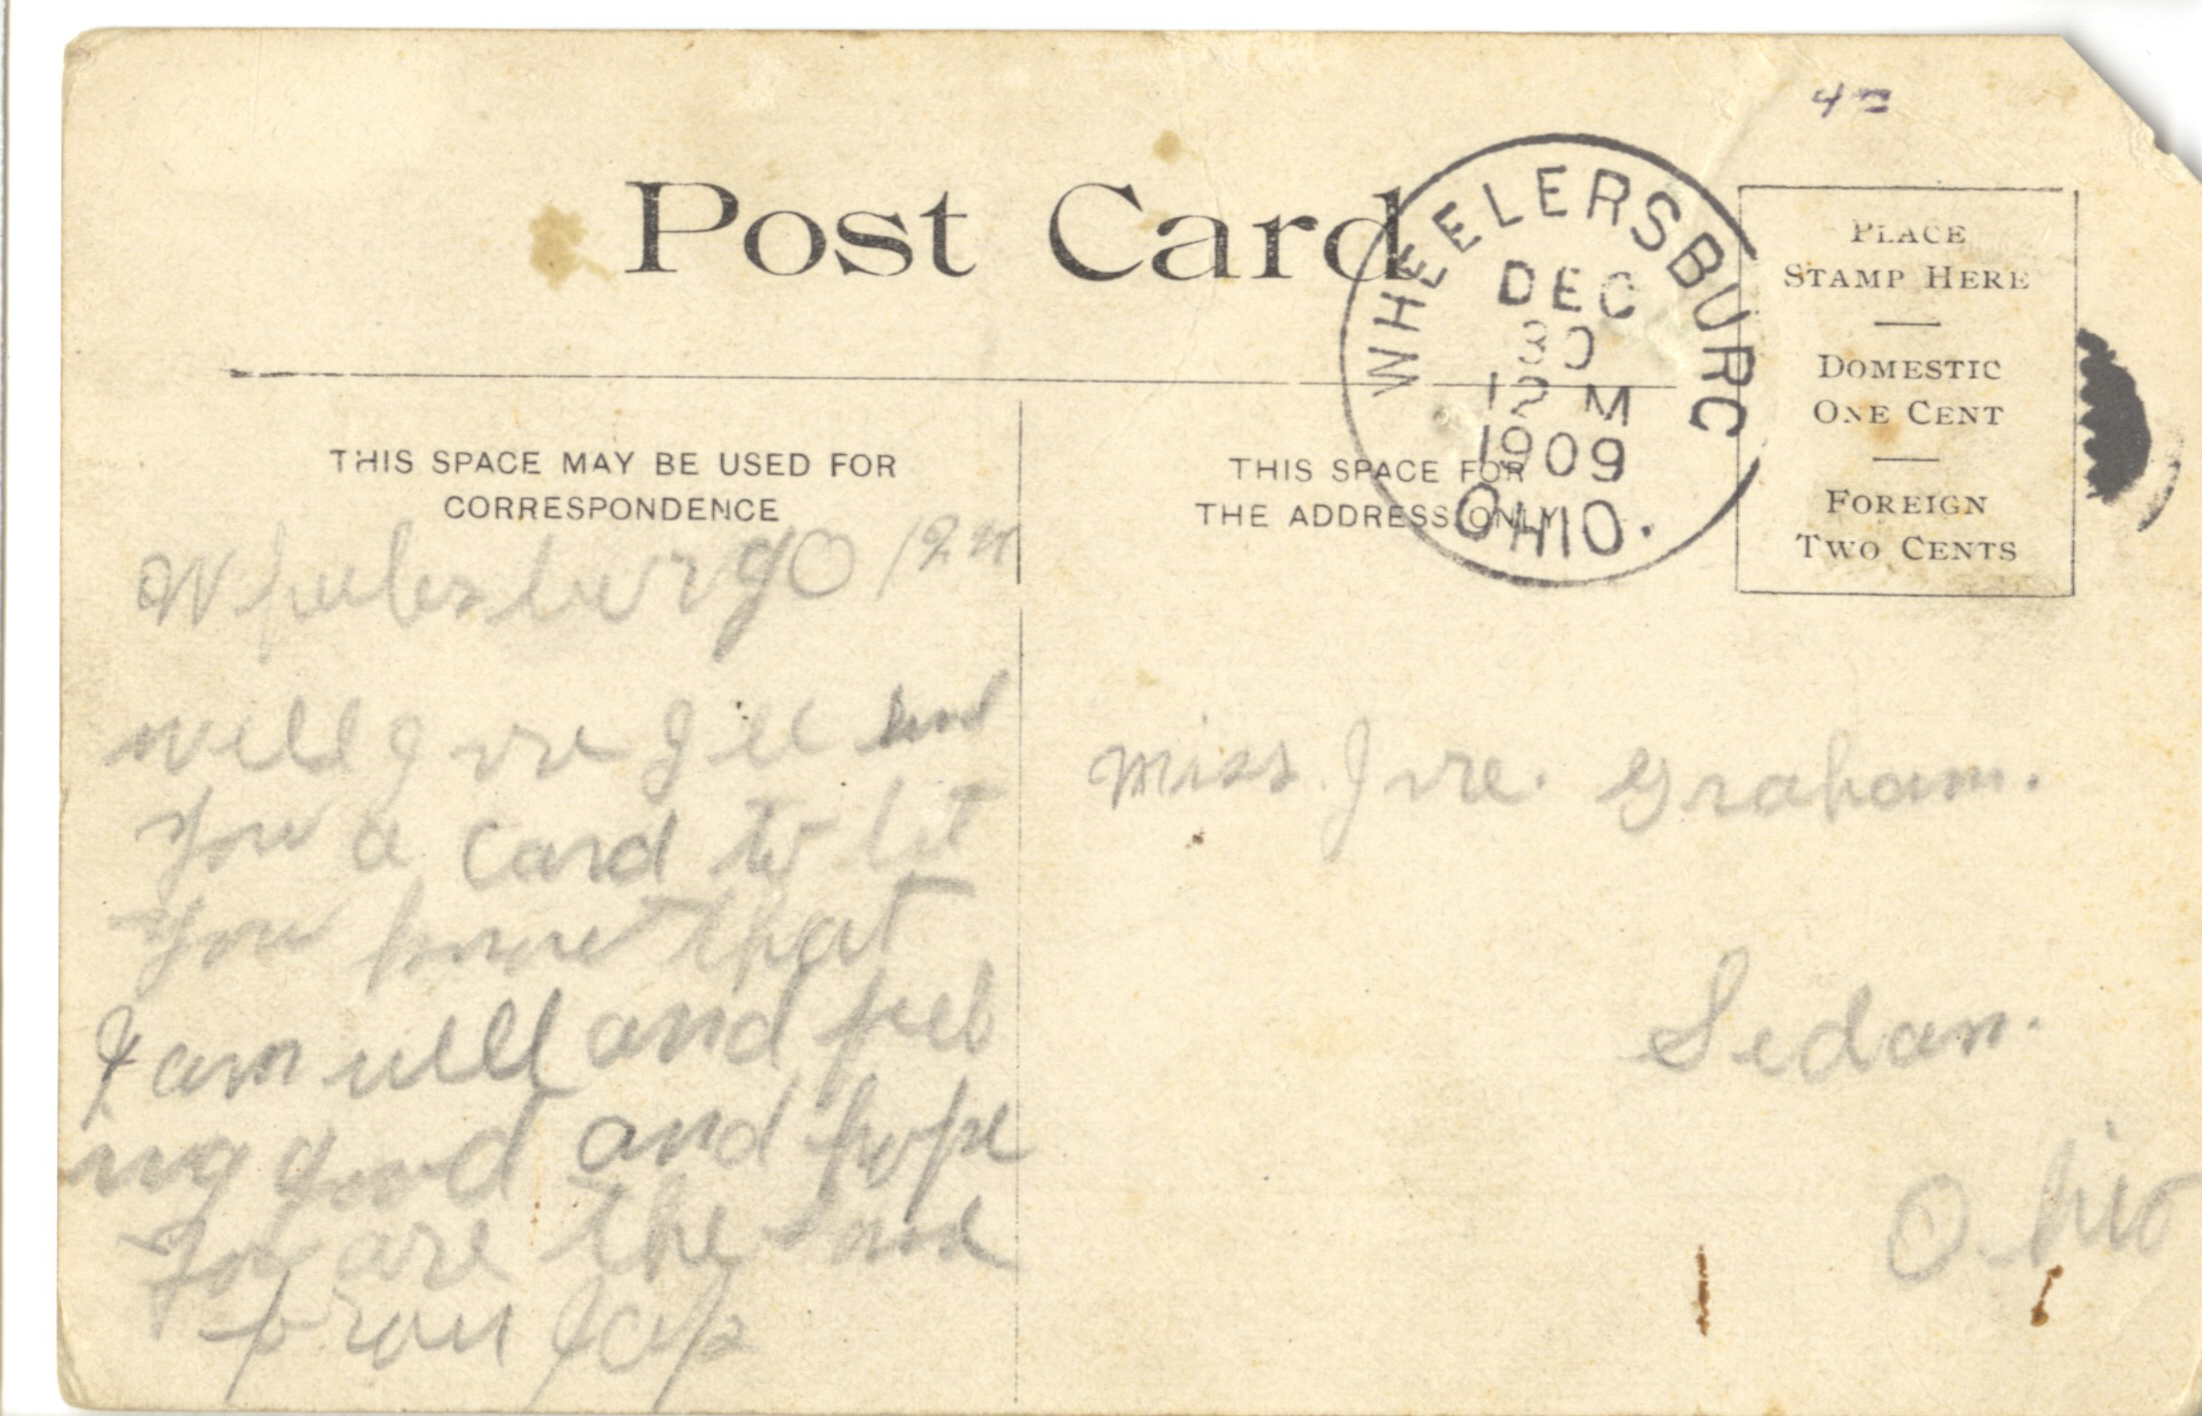 Post Card
WHEELERSBURG
DEC
30
12 M
1909
OHIO.
PLACE
STAMP HERE
DOMESTIC
ONE CENT
FOREIGN
TWO CENTS
THIS SPACE MAY BE USED FOR
CORRESPONDENCE
THIS SPACE FOR
THE ADDRESS ONLY
Wheelersburg O
well Ive I ll send
you a card to let
you know that
I am well and feel
ing good and hope
you are the same
from
Miss. Ive. Graham.
Sedan.
Ohio